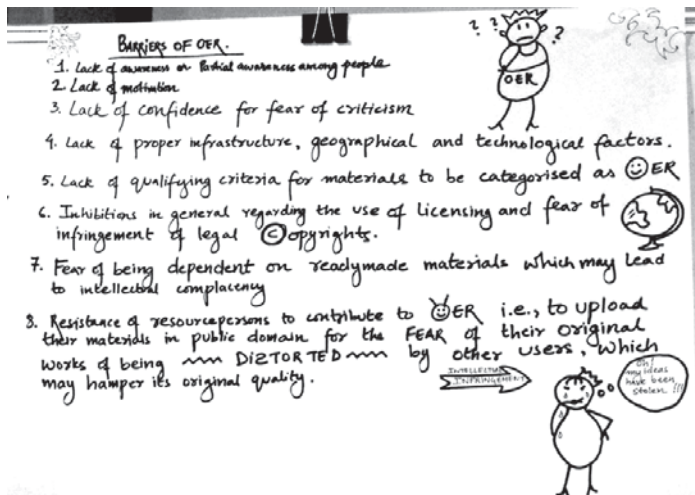 BARRIERS OF OER.
? ? ?
OER
1. Lack of awareness or Partial awareness among people
2. Lack of motivation
3. Lack of confidence for fear of criticism
4. Lack of proper infrastructure, geographical and technological factors.
5. Lack of qualifying criteria for materials to be categorised as OER
6. Inhibitions in general regarding the use of licensing and fear of
infringement of legal ©opyrights.
7. Fear of being dependent on readymade materials which may lead
to intellectual complacency
8. Resistance of resourcepersons to contribute to OER i.e., to upload
their materials in public domain for the FEAR of their original
works of being DISTORTED by other users, which
may hamper its original quality.
INTELLECTUAL
INFRINGEMENT
Oh!
my ideas
have been
stolen!!!